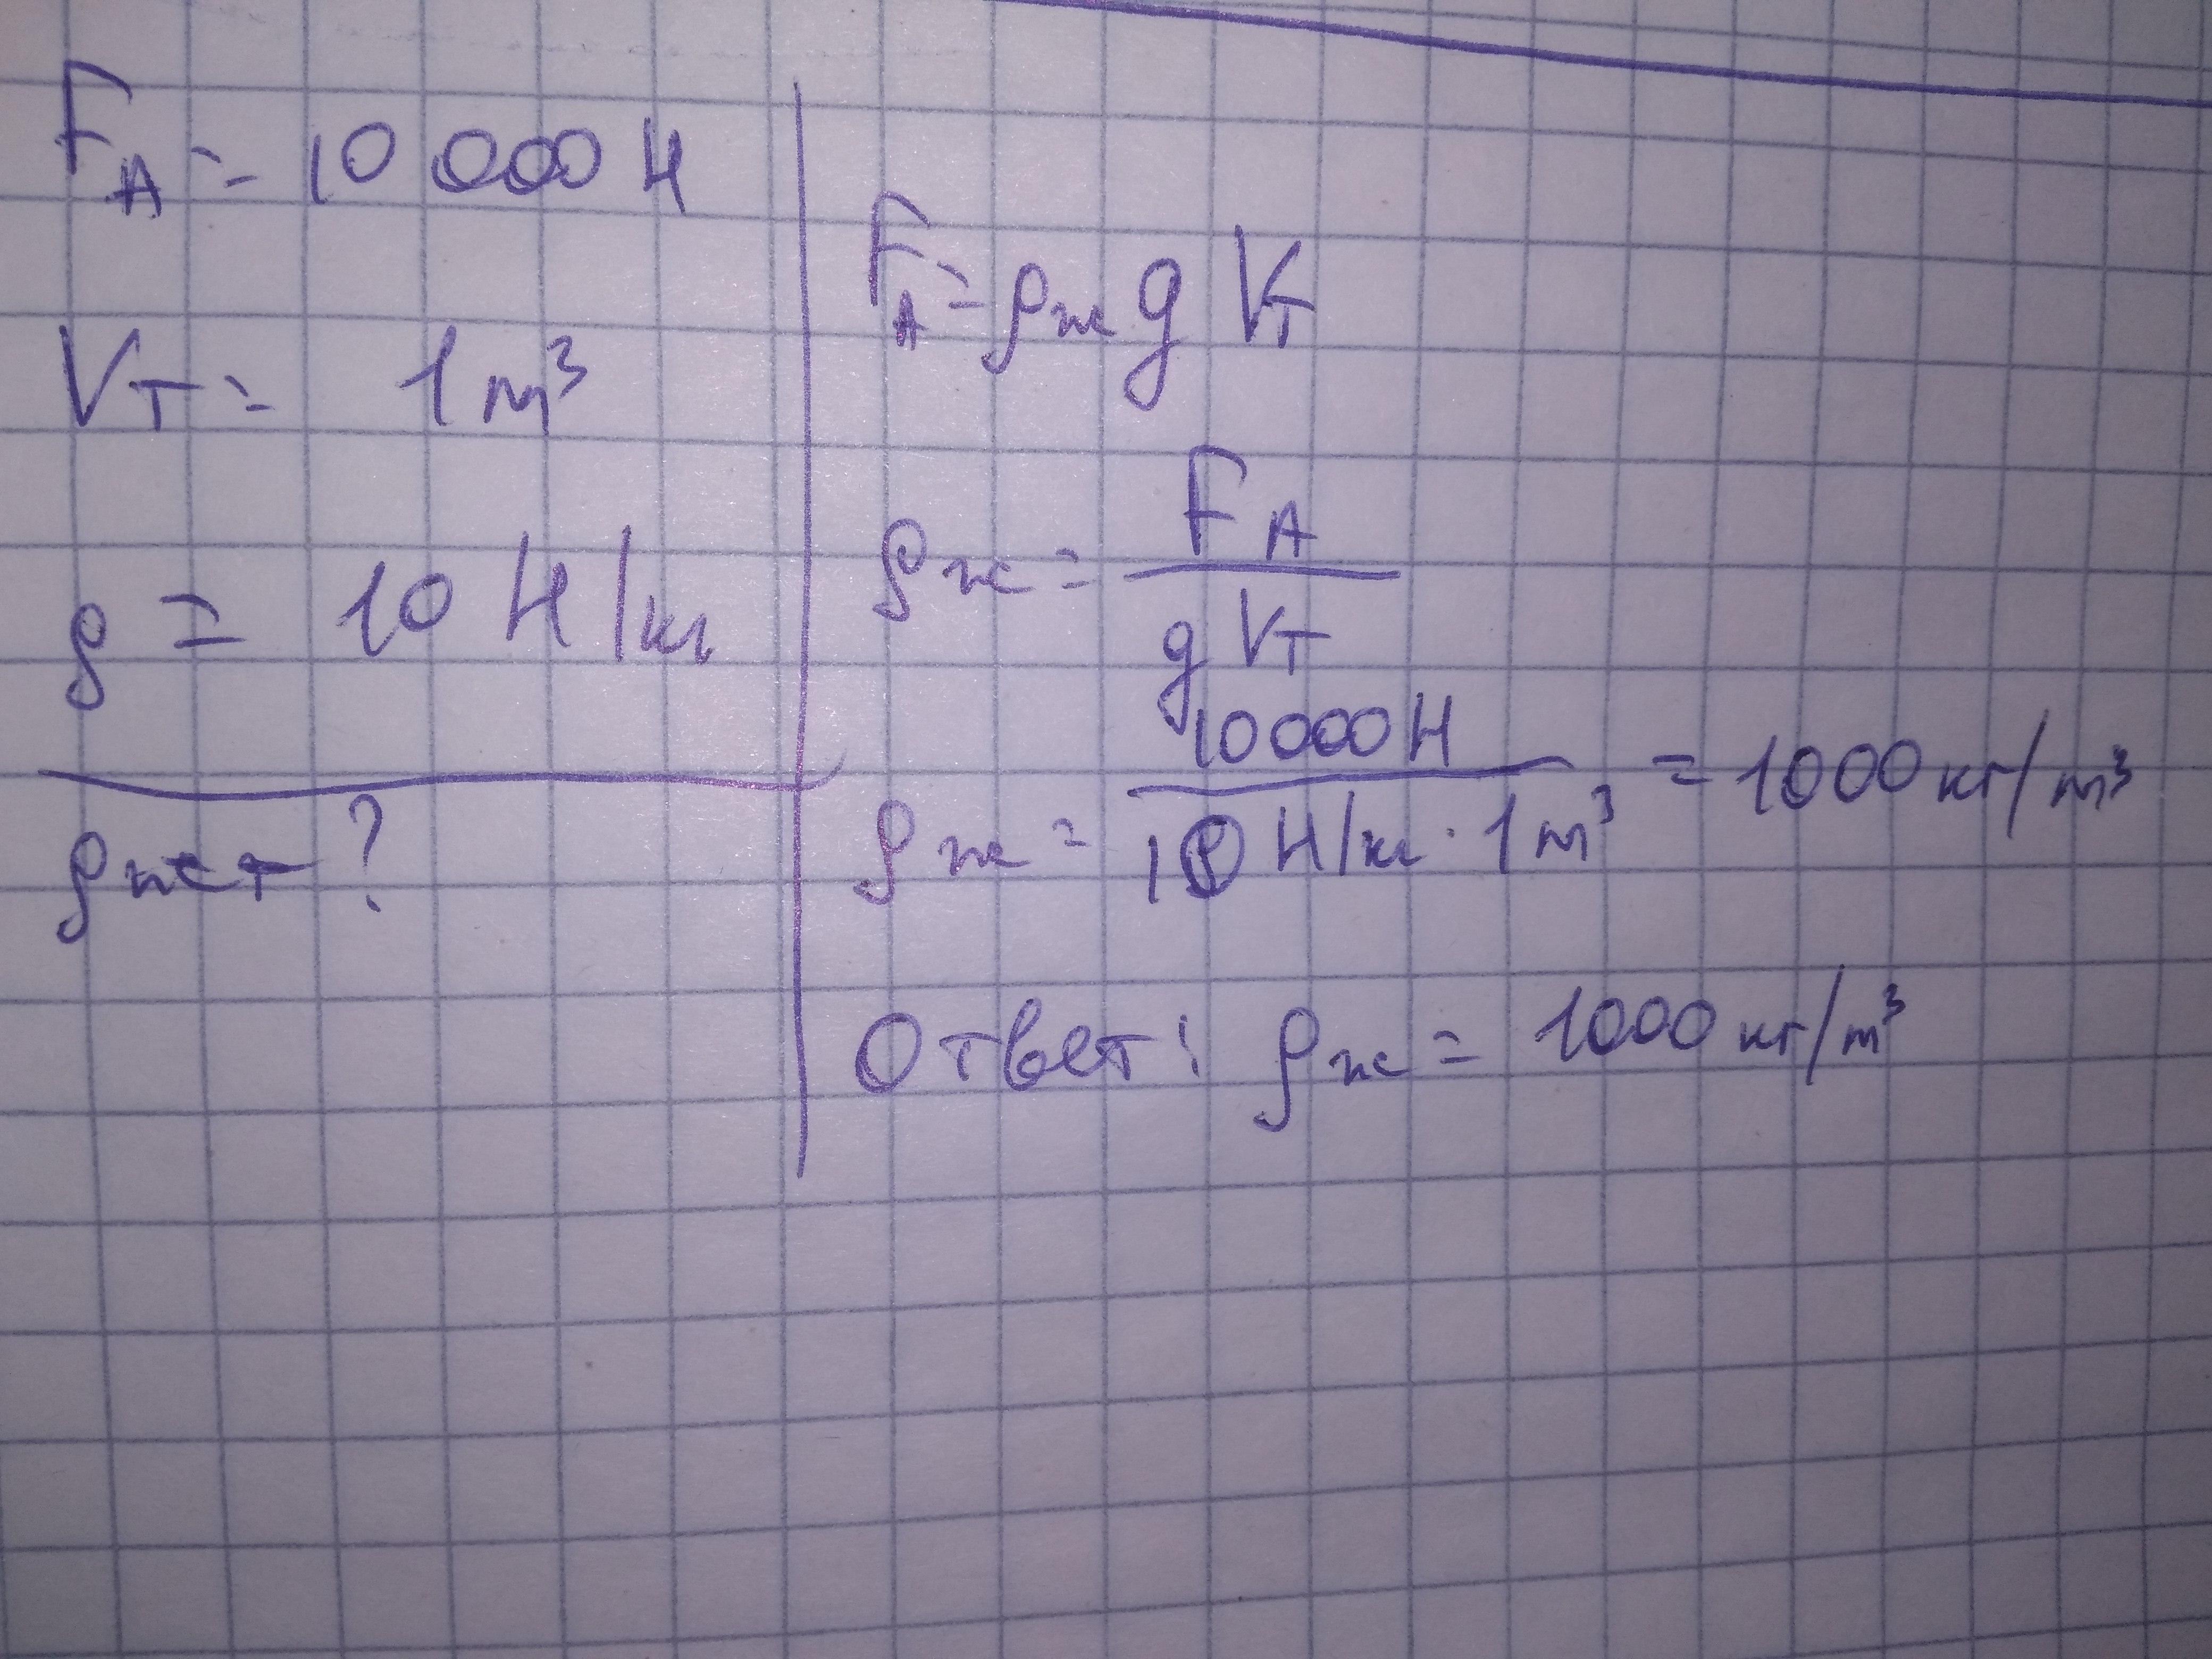 F_A = 10 000 Н
V_T = 1 м³
g = 10 Н/кг
ρ ж-т ?
F_A = ρ_ж g V_T
ρ_ж = F_A / g V_T
ρ_ж = 10000 Н / 10 Н/кг · 1 м³ = 1000 кг/м³
Ответ: ρ_ж = 1000 кг/м³